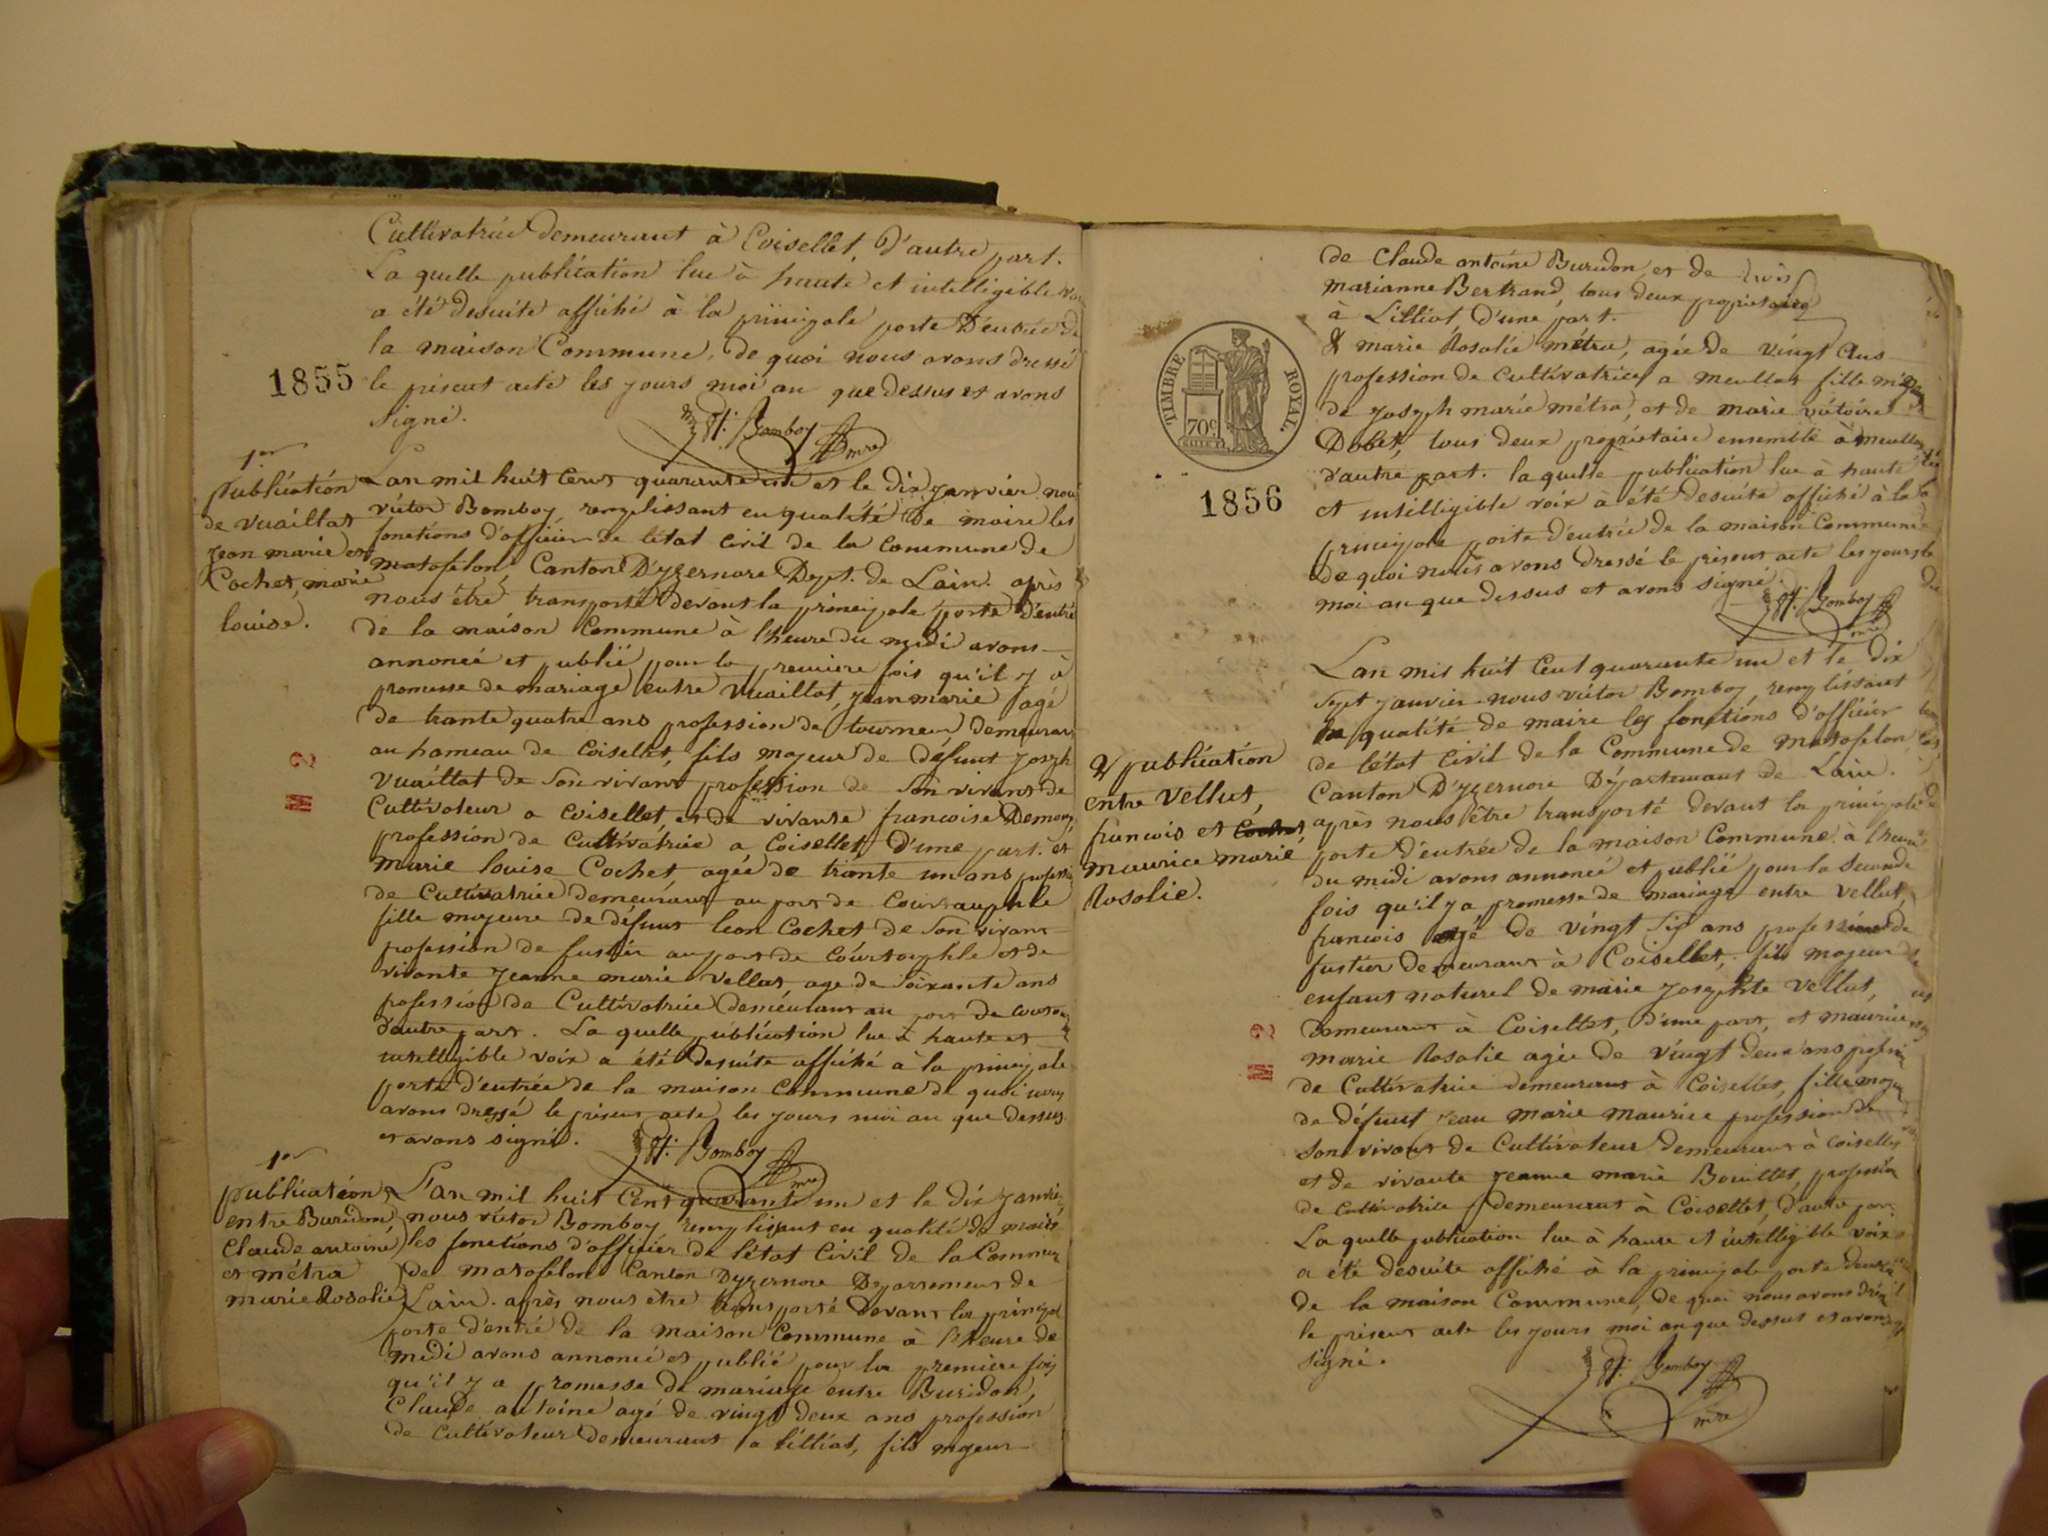 Cultivatrice demeurant à Coisellet, d'autre part.
La quelle publication lue à haute et intelligible
a été desuite affiché à la principale porte D'entrée de
la maison Commune, de quoi nous avons dressé
1855
le présent acte les jours moi an que dessus et avons
signé.
Vt. Bomboy
mre
1er
publication
de Vuaillat
Jean marie et
Cochet, marie
louise.
Lan mil huit Cent quarante un et le dix janvier nous
victor Bomboy, remplissant en qualité de maire les
fonctions d'officier de létat Civil de la Commune de
matafelon, Canton D'yzernore Dept. de Lain. après
nous être transporté devant la principale porte d'entré
de la maison Commune à l'heure du midi avons
annoncé et publié pour la premiere fois qu'il y à
promesse de mariage entre Vuaillat, jean marie agé
de trante quatre ans profession de tourneur, demeurant
au hameau de Coisellet, fils majeur de défunt Joseph
Vuaillat de Son vivant profession de Son vivant de
Cultivateur a Coisellet, et de vivante francoise
profession de Cultivatrice a Coisellet, D'une part. et
Marie louise Cochet, agée de trante un ans profession
de Cultivatrice demeurant au port de
fille majeure de défunt leon Cochet de Son vivant
profession de fustier au port de et de
vivante Jeanne marie Vellut, age de Soixante ans
pofession de Cultivatrice demeurant au port de
d'autre part. La quelle publication lue à haute et
intelligible voix a été desuite affiché à la principale
porte d'entrée de la maison Commune de quoi nous
avons dressé le présent acte les jours moi an que dessus
et avons signé.
Vt. Bomboy
mre
1er
publication
entre Buridon,
Claude antoine
et métra
marie Rosalie
L'an mil huit Cent quarante un et le dix Janvier,
nous victor Bomboy remplissant en qualité de maire
les fonctions d'officier de létat Civil de la Commune
de matafelon Canton Dyzernore Departement de
Lain. après nous être transporté devant la principale
porte d'entré de la maison Commune à l'heure de
midi avons annoncé et publié pour la première fois
qu'il y a promesse de mariage entre Buridon,
Claude antoine agé de vingt deux ans profession
de Cultivateur demeurant a lilliat, fils majeur
de Claude antoine Buridon, et de
marianne Bertrand, tous deux propriétaire
à Lilliat, d'une part.
& marie Rosalie métra, agée de vingt Ans
profession de Cultivatrice a meullas fille
de joseph marie métra, et de marie victoire
tous deux propriétaire ensemble à
d'autre part. la quelle publication lue à haute
et intelligible voix à été desuite affiché à la
principale porte d'entrée de la maison Commune
de quoi nous avons dressé le présent acte les jours
moi an que dessus et avons signé.
TIMBRE ROYAL.
70c
1856
Vt. Bomboy
mre
2e publication
entre Vellut,
francois et
maurice marie
Rosalie.
Lan mil huit Cent quarante un et le dix
Sept janvier nous victor Bomboy, remplissant
en qualité de maire les fonctions d'officier
de létat Civil de la Commune de matafelon
Canton D'yzernore Département de Lain.
après nous être transporté devant la principale
porte d'entrée de la maison Commune à l'heure
du midi avons annoncé et publié pour la Seconde
fois qu'il y a promesse de mariage entre Vellut,
francois agé de vingt ans profession de
fustier demeurant à Coisellet, fils majeur
enfant naturel de marie Josephte Vellut,
demeurant à Coisellet, d'une part, et maurice
marie Rosalie agée de vingt deux ans
de Cultivatrice demeurant à Coisellet, fille
de défunt jean marie maurice profession de
Son vivant de Cultivateur demeurant à Coisellet
et de vivante jeanne marie Bouillet, profession
de Cultivatrice demeurant à Coisellet, d'autre part
La quelle publication lue à haute et intelligible voix
a été desuite affiché à la principale porte
de la maison Commune, de quoi nous avons
le présent acte les jours moi an que dessus et avons
signé.
Vt. Bomboy
mre
M 2
M 2